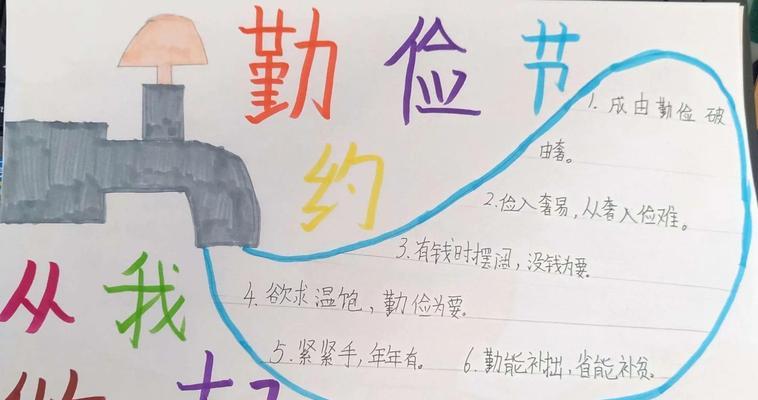 勤俭节
约
从我
做起
1. 成由勤俭破
由奢。
2. 俭入奢易，从奢入俭难。
3. 有钱时摆阔，没钱为要。
4. 欲求温饱，勤俭为要。
5. 紧紧手，年年有。
6. 勤能补拙，省能补贫。